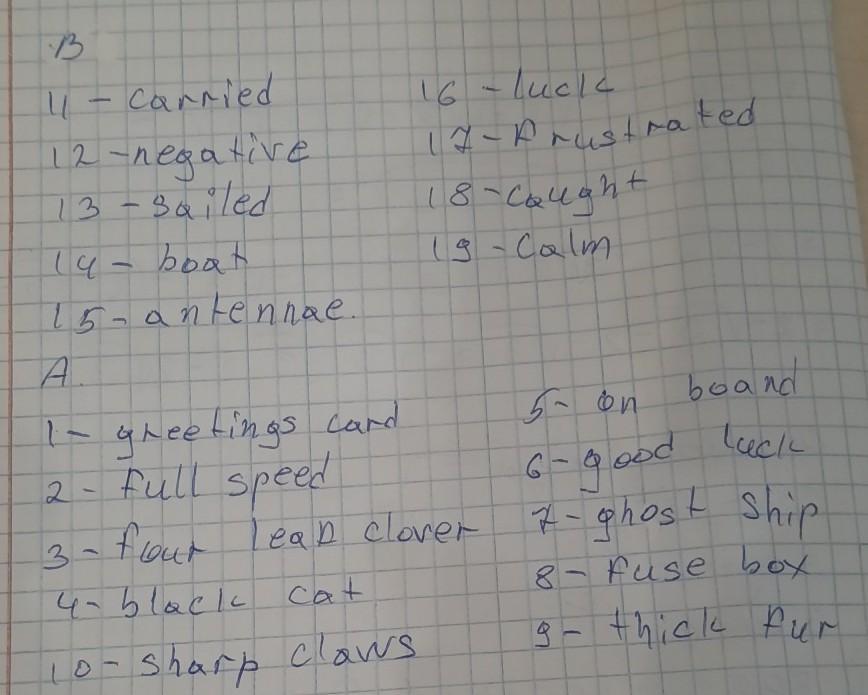 B
11 - carried
12 - negative
13 - sailed
14 - boat
15 - antennae.
16 - luck
17 - frustrated
18 - caught
19 - calm
A.
1 - greetings card
2 - full speed
3 - four leaf clover
4 - black cat
10 - sharp claws
5 - on board
6 - good luck
7 - ghost ship
8 - fuse box
9 - thick fur